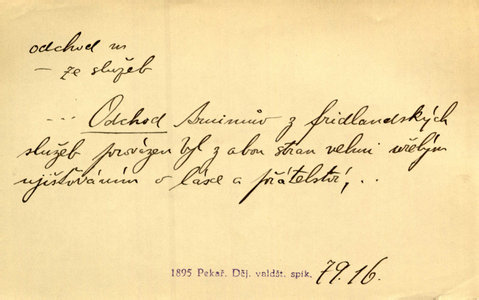 odchod m
– ze služeb
... Odchod Arnimův z fridlandských
služeb provázen byl z obou stran velmi vřelým
ujišťováním o lásce a přátelství, ..
1895 Pekař. Děj. valdšt. spik. 79.16.